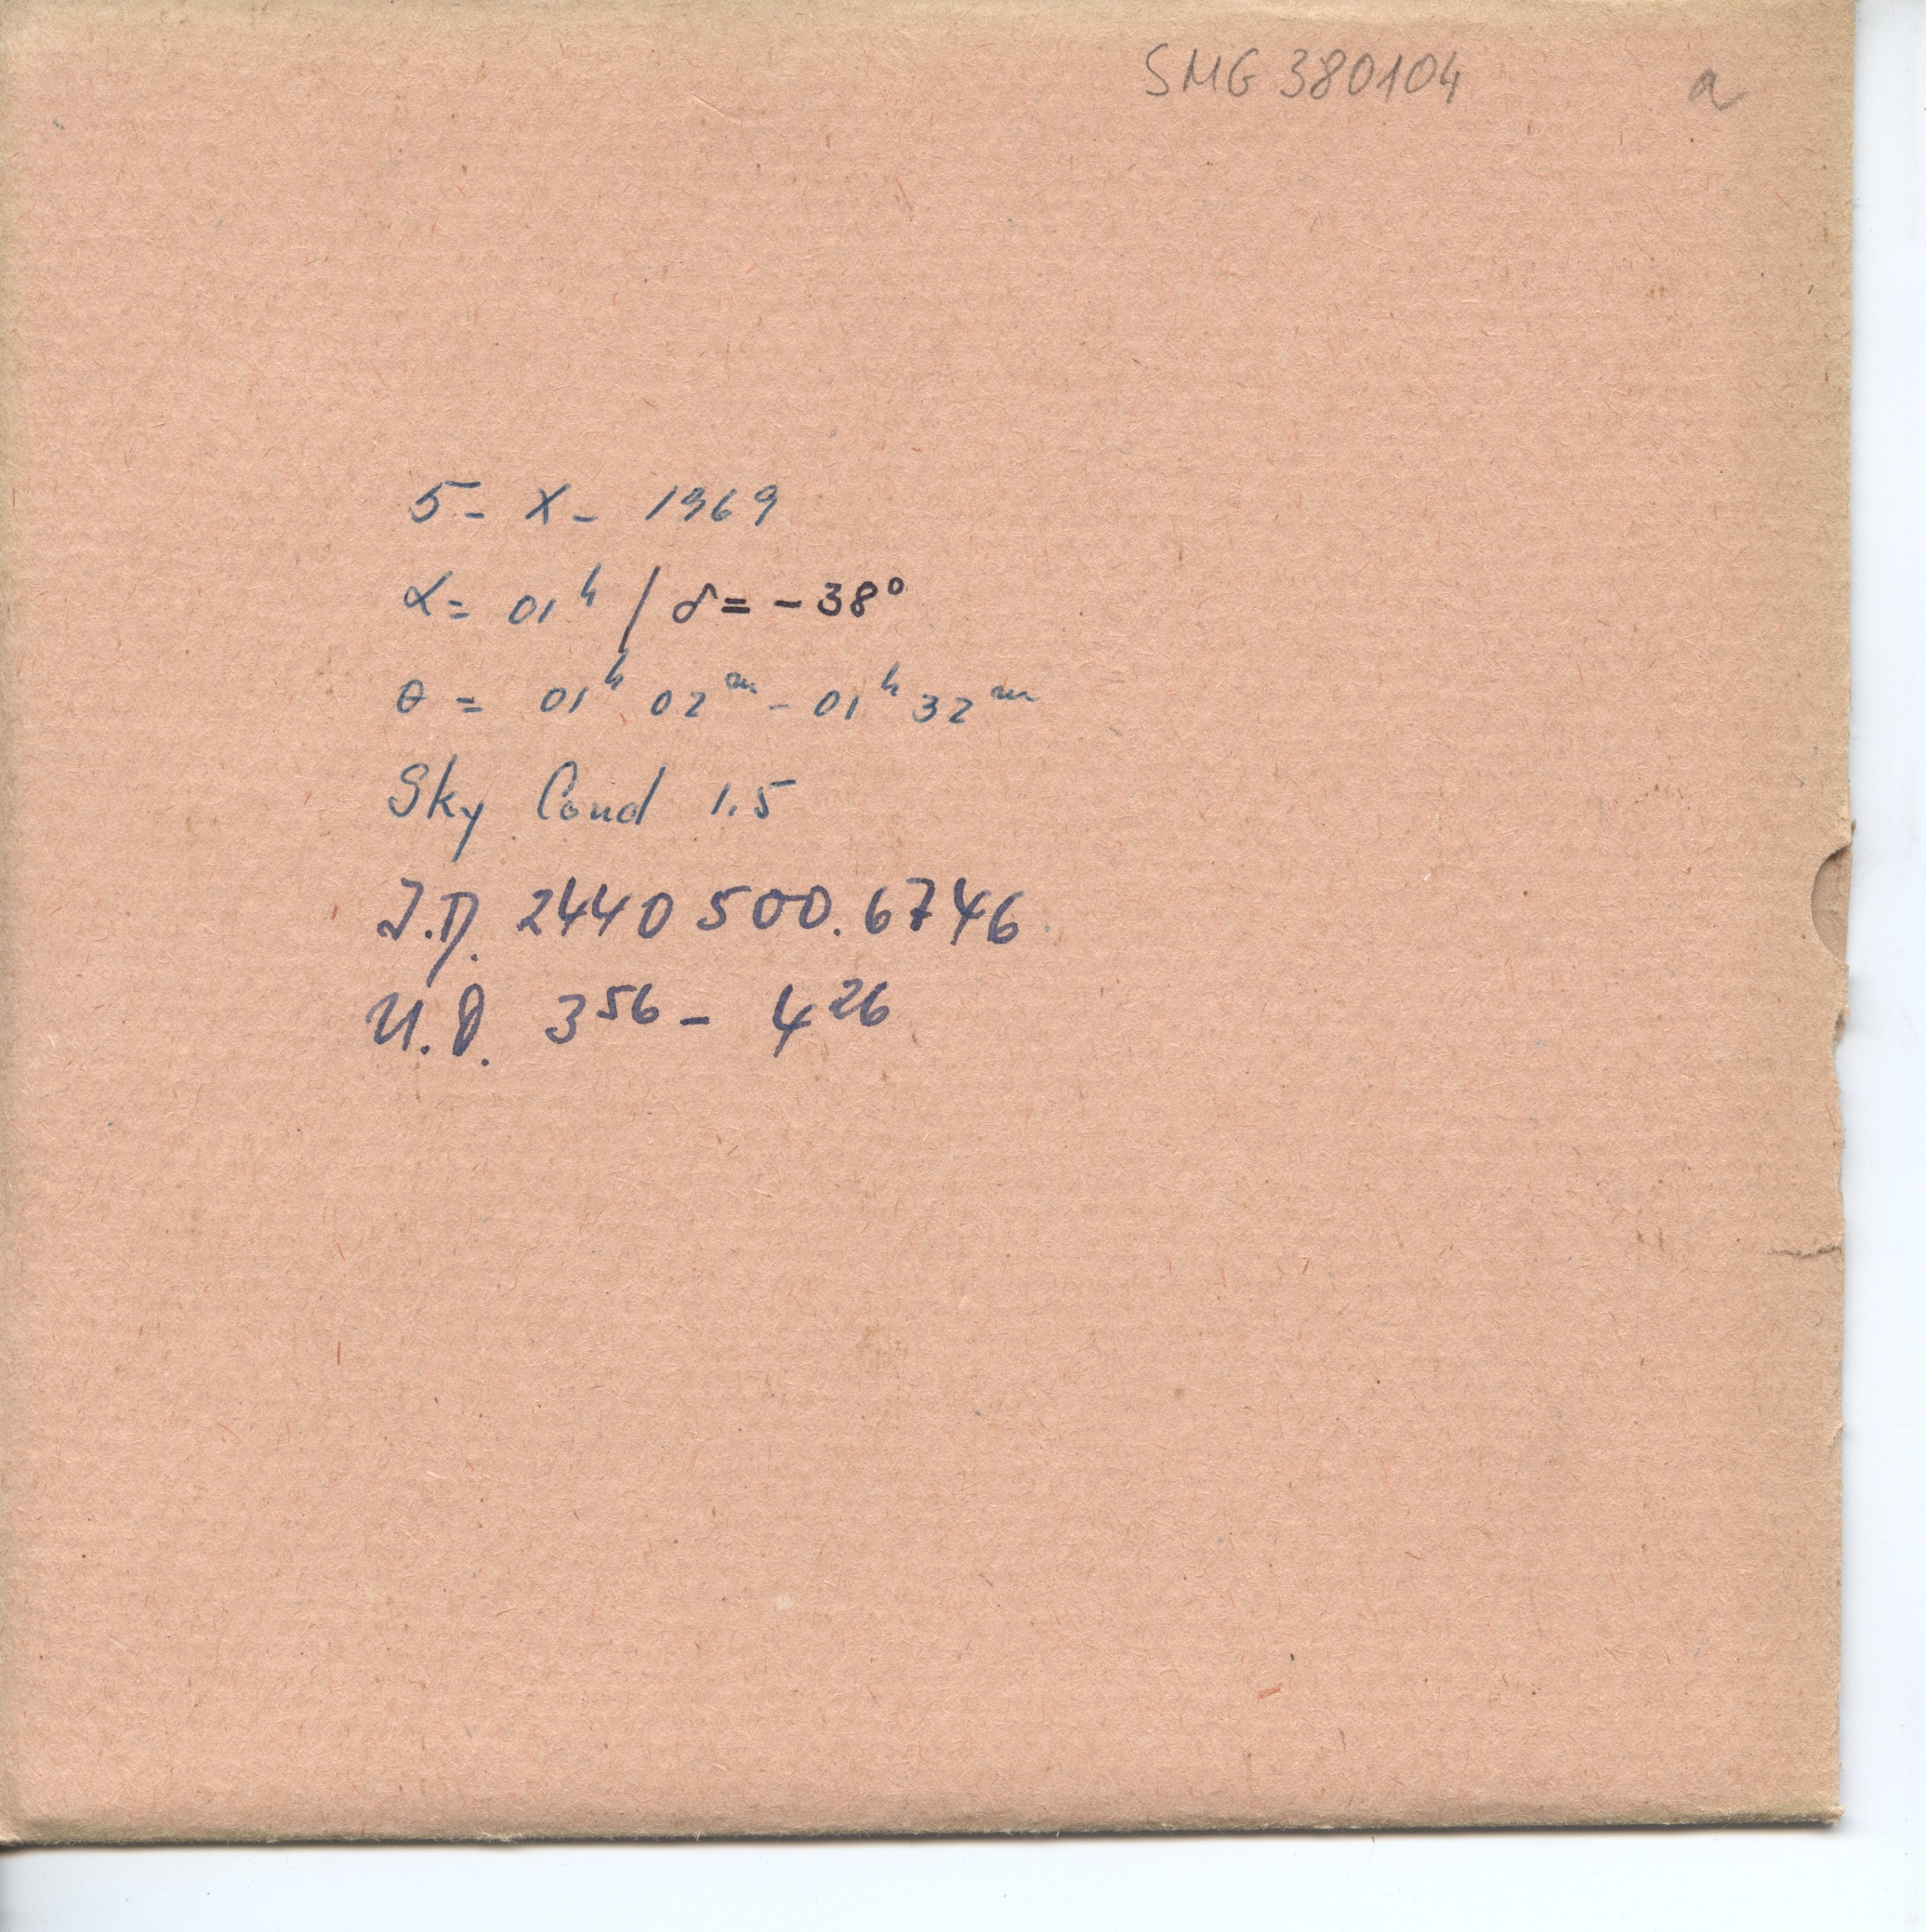 SMG 380104 a
5- X- 1969
α= 01ʰ / δ= -38°
θ = 01ʰ 02ᵐ - 01ʰ 32ᵐ
Sky Cond 1.5
J.D. 2440 500.6746
3⁵⁶ - 4²⁶